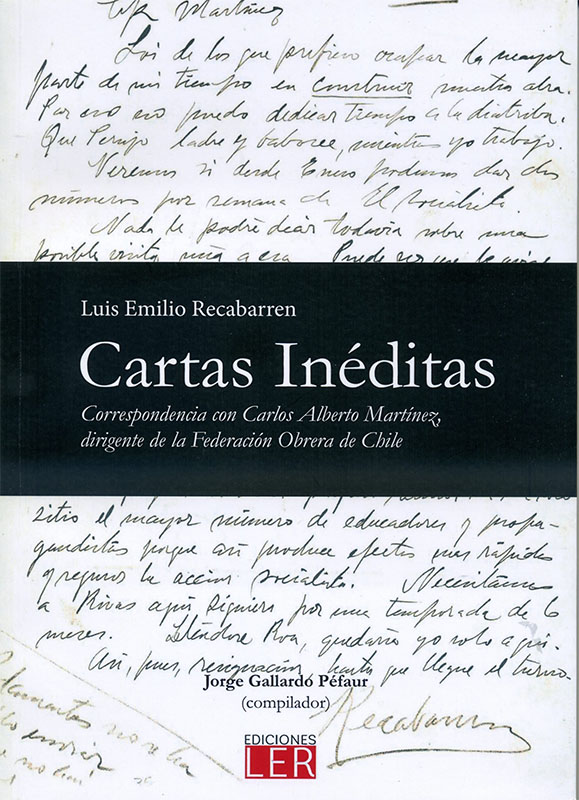 Martínez
Soi de los que prefiero ocupar la mayor
parte de mi tiempo en construir nuestra obra.
Por eso no puedo dedicar tiempo a la diatriba.
Que Perujo ladre y babosee, mientras yo trabajo.
Veremos si desde Enero podemos dar dos
números por semana de El Socialista.
Nada le podré decir todavía sobre una
posible visita mía a esa. Puede ser que
Luis Emilio Recabarren
Cartas Inéditas
Correspondencia con Carlos Alberto Martínez,
dirigente de la Federación Obrera de Chile
sitio el mayor número de educadores y propa-
gandistas porque así produce efectos más rápidos
y seguros la acción socialista. Necesitamos
a Rivas aquí siquiera por una temporada de 6
meses. Roa, quedaría yo solo aquí.
Así, pues, resignación, hasta que llegue el turno.
Jorge Gallardo Péfaur
(compilador)
Recabarren
no se ha
enviar
no hai
EDICIONES
LER